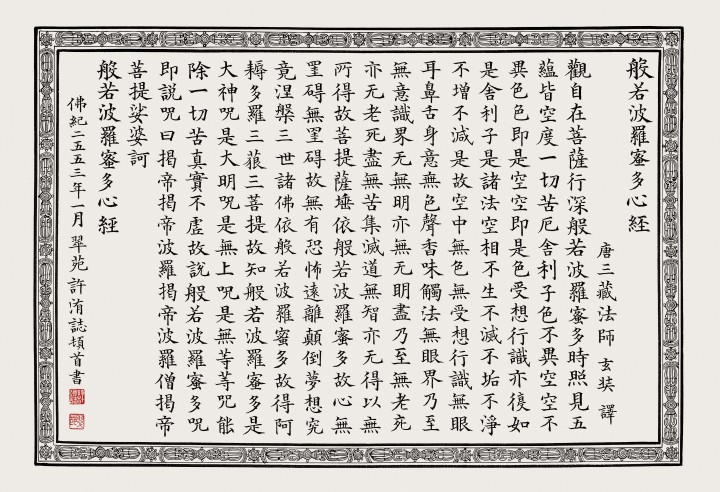 般若波羅蜜多心經
唐三藏法師 玄奘 譯
觀自在菩薩行深般若波羅蜜多時照見五
蘊皆空度一切苦厄舍利子色不異空空不
異色色即是空空即是色受想行識亦復如
是舍利子是諸法空相不生不滅不垢不淨
不增不減是故空中無色無受想行識無眼
耳鼻舌身意無色聲香味觸法無眼界乃至
無意識界无無明亦無无明盡乃至無老死
亦无老死盡無苦集滅道無智亦无得以無
所得故菩提薩埵依般若波羅蜜多故心無
罣礙無罣礙故無有恐怖遠離顛倒夢想究
竟涅槃三世諸佛依般若波羅蜜多故得阿
耨多羅三藐三菩提故知般若波羅蜜多是
大神咒是大明咒是無上咒是無等等咒能
除一切苦真實不虛故說般若波羅蜜多咒
即說咒曰揭帝揭帝波羅揭帝波羅僧揭帝
菩提娑婆訶
般若波羅蜜多心經
佛紀二五五三年一月 翠苑 許洧誌頓首書